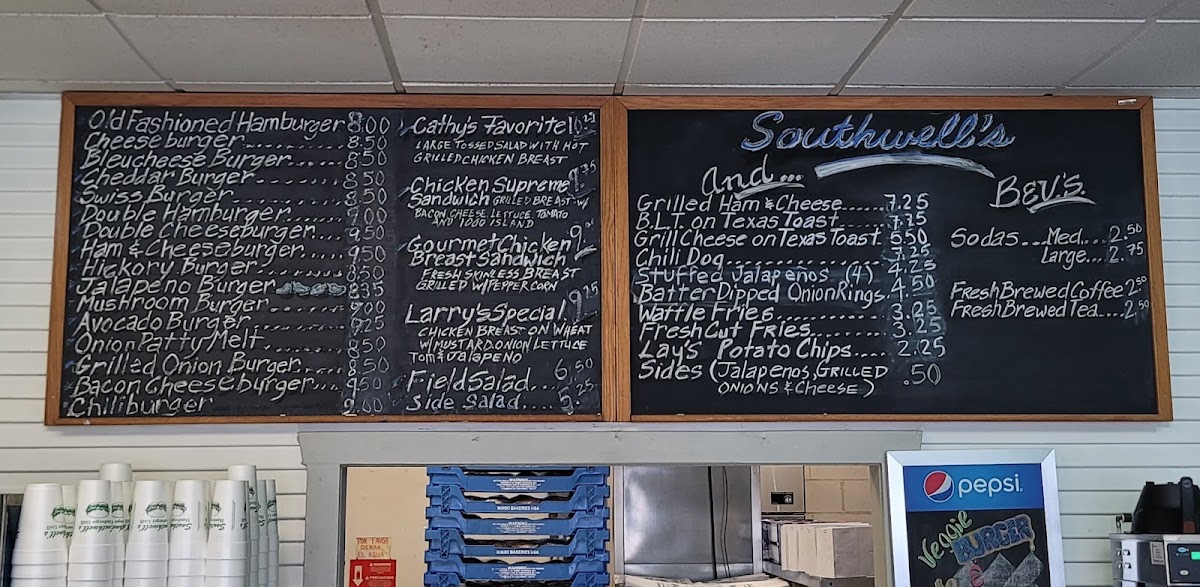 Old Fashioned Hamburger 8.00
Cheeseburger 8.50
Bleucheese Burger 8.50
Cheddar Burger 8.50
Swiss Burger 8.50
Double Hamburger 9.00
Double Cheeseburger 9.50
Ham & Cheeseburger 9.50
Hickory Burger 8.50
Jalapeno Burger 8.35
Mushroom Burger 9.00
Avocado Burger 9.25
Onion Patty Melt 8.50
Grilled Onion Burger 8.50
Bacon Cheeseburger 9.50
Chiliburger
Cathy's Favorite
LARGE TOSSED SALAD WITH HOT
GRILLED CHICKEN BREAST
Chicken Supreme 9.75
Sandwich GRILLED BREAST W/
BACON CHEESE LETTUCE TOMATO
AND 1000 ISLAND
Gourmet Chicken
Breast Sandwich
FRESH SKINLESS BREAST
GRILLED W/PEPPERCORN
Larry's Special 9.25
CHICKEN BREAST ON WHEAT
W/MUSTARD ONION LETTUCE
TOM & JALAPENO
Field Salad... 6.50
Side Salad.... 5.25
Southwell's
and...
Grilled Ham & Cheese...... 7.25
B.L.T. on Texas Toast 7.75
Grill Cheese on Texas Toast. 5.50
Chili Dog 7.25
Stuffed Jalapeños (4) 4.25
Batter Dipped Onion Rings. 4.50
Waffle Fries 3.25
Fresh Cut Fries 3.25
Lay's Potato Chips.... 2.25
Sides (Jalapenos, GRILLED .50
ONIONS & CHEESE)
BEV'S.
Sodas... Med... 2.50
Large... 2.75
Fresh Brewed Coffee 2.50
Fresh Brewed Tea.... 2.50
pepsi
Veggie
BURGER
POR FAVOR
CIERRA
EL AGUA
WARNING
BIMBO BAKERIES USA